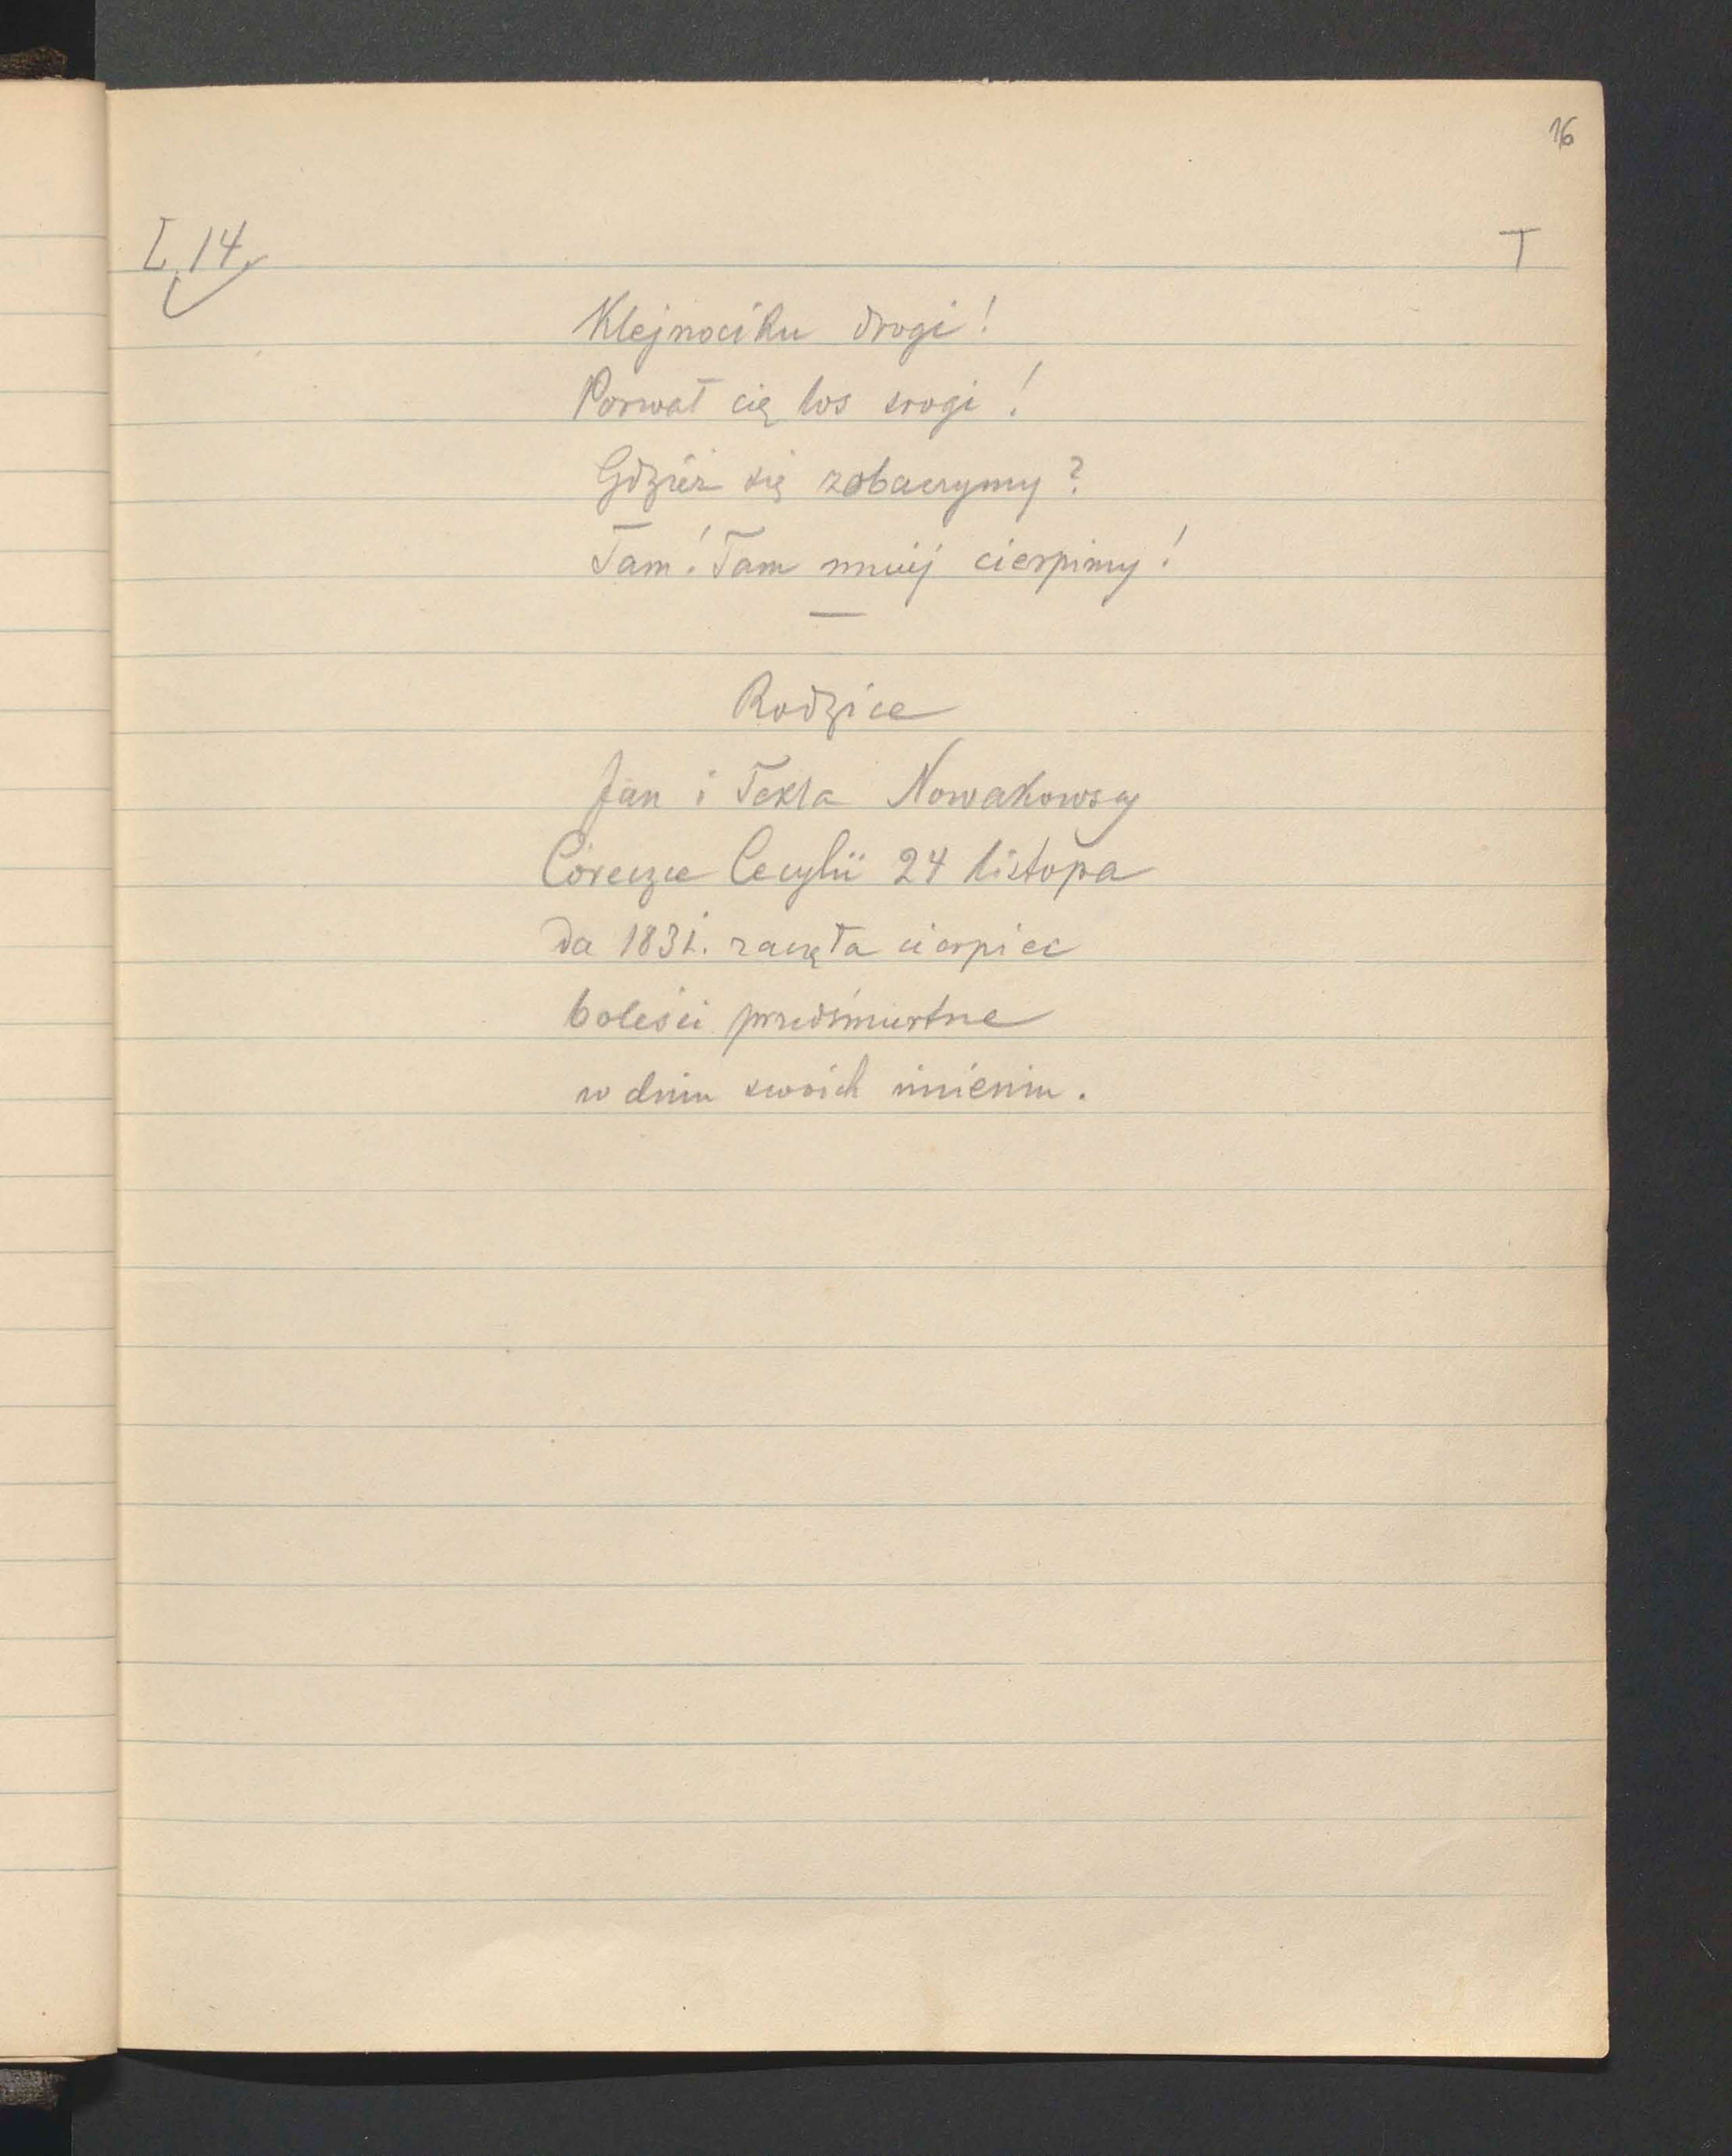 16
I. 14.
T
Klejnociku drogi!
Porwał cię los srogi!
Gdzież się zobaczymy?
Tam! Tam mniéj cierpimy!
Rodzice
Jan i Tekla Nowakowscy
Córeczce Cecylii 24 listopa
da 1831. zaczęła cierpieć
boleści przedśmiertne
w dniu swoich imienin.